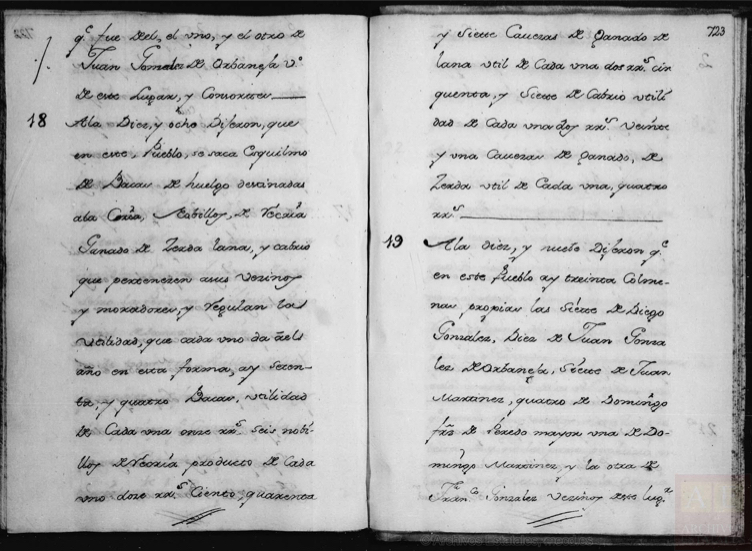 q.e fue del, el vno, y el otro de
Juan Gonzalez de Orbaneja v.o
de este Lugar, y Consortes
18
Ala Diez, y ocho Dijeron, que
en este Pueblo, se saca Esquilmo
de Bacas de huelgo destinadas
ala Cria, Nobillos, de
Ganado de Zerda lana, y cabrio
que pertenezen asus Vezinos
y moradores, y Regulan la
vtilidad, que cada vno da
año en esta forma, ay seten-
ta, y quatro Bacas, vtilidad
de Cada vna onze rr.s seis nobi-
llos de producto de Cada
vno doze rr.s Ciento, quarenta
723
y Siete Cavezas de Ganado de
lana vtil de Cada vna dos rr.s cin
quenta, y Siete de Cabrio vtili
dad de Cada vna dos rr.s Veinte
y vna Cavezas de Ganado, de
Zerda vtil de Cada vna, quatro
rr.s
19
Ala diez, y nuebe Dijeron q.e
en este Pueblo ay treinta Colme-
nas, propias las Siete de Diego
Gonzalez, Diez de Juan Gonza
lez de Orbaneja, Siete de Juan
Martinez, quatro de Domingo
frz de Peredo mayor vna de Do-
mingo Martinez, y la otra de
Fran.co Gonzalez Vezinos de este lug.r